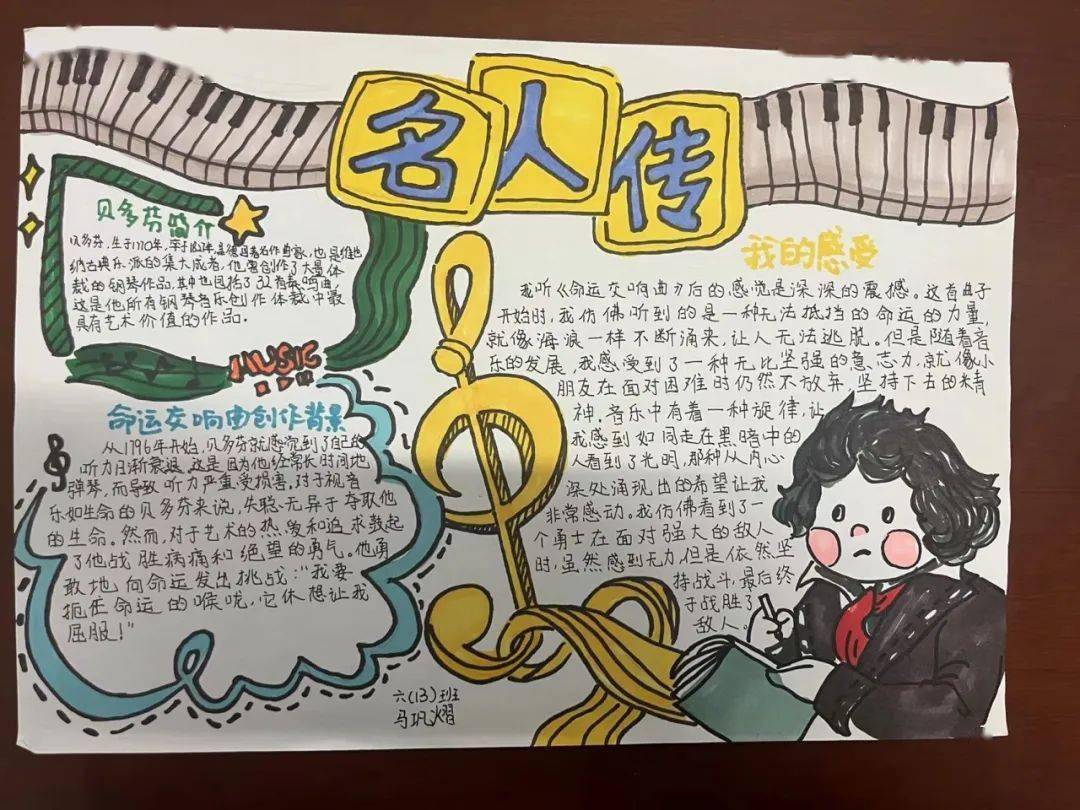 名人传
贝多芬简介
贝多芬,生于1770年,卒于
纳古典乐派的集大成者,他
裁的钢琴作品,其中也包括了32首奏鸣曲,
这是他所有钢琴音乐创作体裁中最
具有艺术价值的作品.
MUSIC
命运交响曲创作背景
从1796年开始,贝多芬就感觉到了自己的
听力日渐衰退.这是因为他经常长时间地
弹琴,而导致听力严重受损害.对于视音
乐如生命的贝多芬来说,失聪无异于夺取他
的生命.然而,对于艺术的热爱和追求鼓起
了他战胜病痛和绝望的勇气.他勇
敢地向命运发出挑战:“我要
扼住命运的喉咙,它休想让我
屈服!”
我的感受
我听《命运交响曲》后的感觉是深深的震撼。这首曲子
开始时,我仿佛听到的是一种无法抵挡的命运的力量,
就像海浪一样不断涌来,让人无法逃脱。但是随着音
乐的发展,我感受到了一种无比坚强的意志力,就像小
朋友在面对困难时仍然不放弃,坚持下去的精
神.音乐中有着一种旋律,让
我感到如同走在黑暗中的
人看到了光明,那种从内心
深处涌现出的希望让我
非常感动。我仿佛看到了一
个勇士在面对强大的敌人
时,虽然感到无力,但是依然坚
持战斗,最后终
于战胜了
敌人。
六(13)班
马巩熠